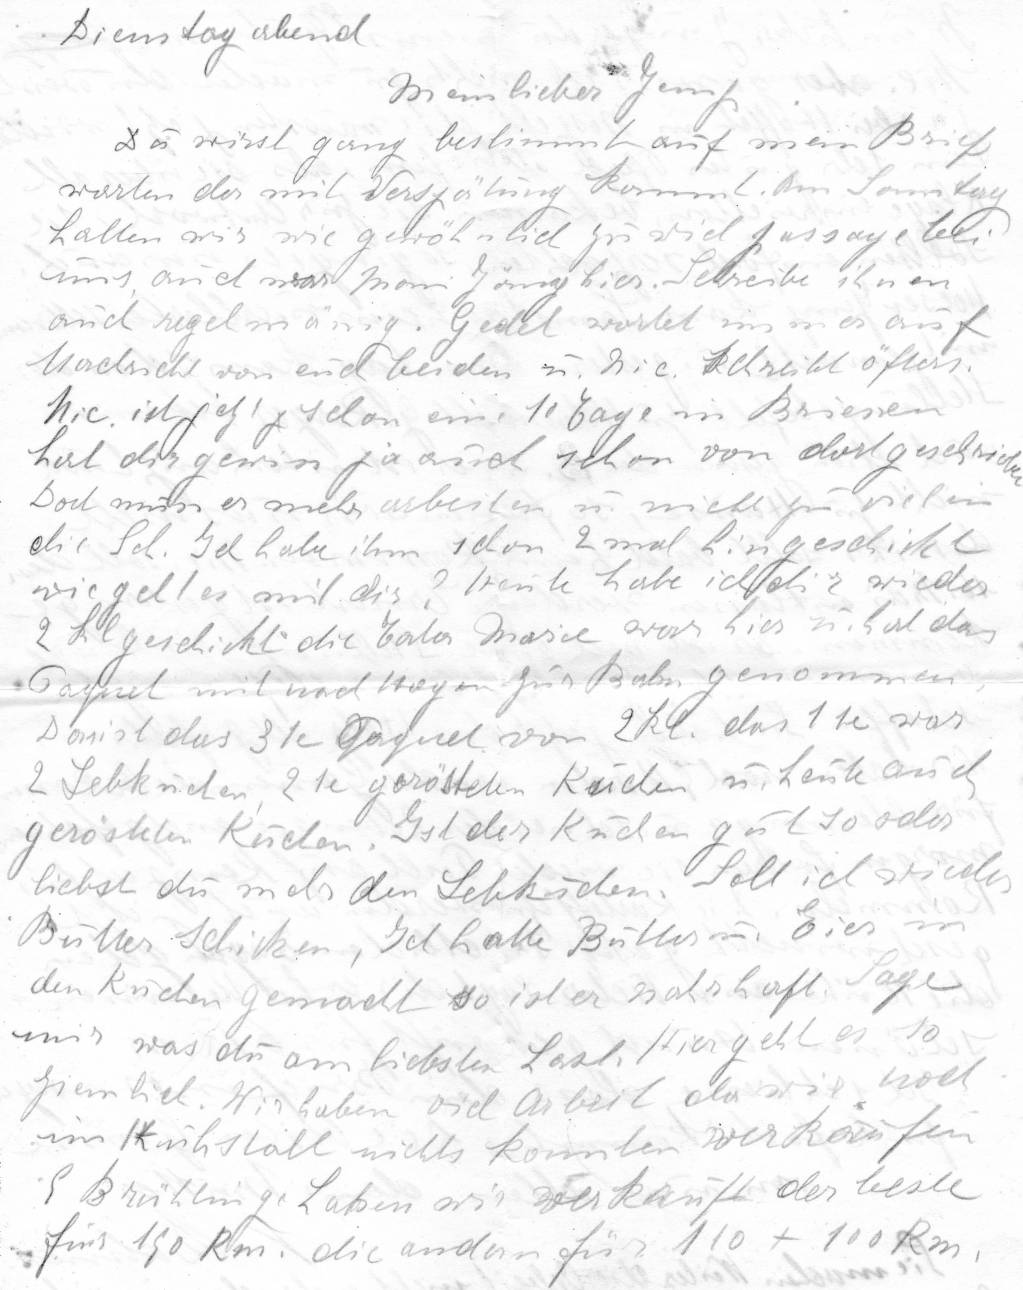 Dienstag abend
Mein lieber Jemp
Du wirst ganz bestimmt auf mein Brief
warten der mit Verspätung kommt. Am Sonntag
hatten wir wie gewöhnlich zu viel passage bei
uns, auch war Mom Jäng hier. Schreibe ihnen
auch regelmäsig. Gedel wartet immer auf
Nachricht von euch beiden u. Nic. schreibt öfters.
Nic. ist jetzt schon eine 10 Tage in Briesen
hat dir gewiss ja auch schon von dort geschrieben
Dort muss er mehr arbeiten u nicht zu viel in
die Sch. Ich habe ihm schon 2 mal hingeschickt
wie geht es mit dir? Heute habe ich dir wieder
2 Kl geschickt die Tata Marie war hier u. hat das
Paquet mit nach Hagen zur Bahn genommen.
Das ist das 3te Paquet von 2 Kl. das 1te war
2 Lebkuchen, 2te gerösteten Kuchen u. heute auch
gerösteten Kuchen. Ist der Kuchen gut so oder
liebst du mehr den Lebkuchen. Soll ich wieder
Butter schicken, Ich hatte Butter u. Eier in
den Kuchen gemacht so ist er nahrhaft. Sage
mir was du am liebsten hast. Hier geht es so
ziemlich. Wir haben viel Arbeit da wir noch
im Kuhstall nichts konnten verkaufen
Brühlinge haben wir verkauft der beste
für 150 Rm. die andern für 110 + 100 Rm.